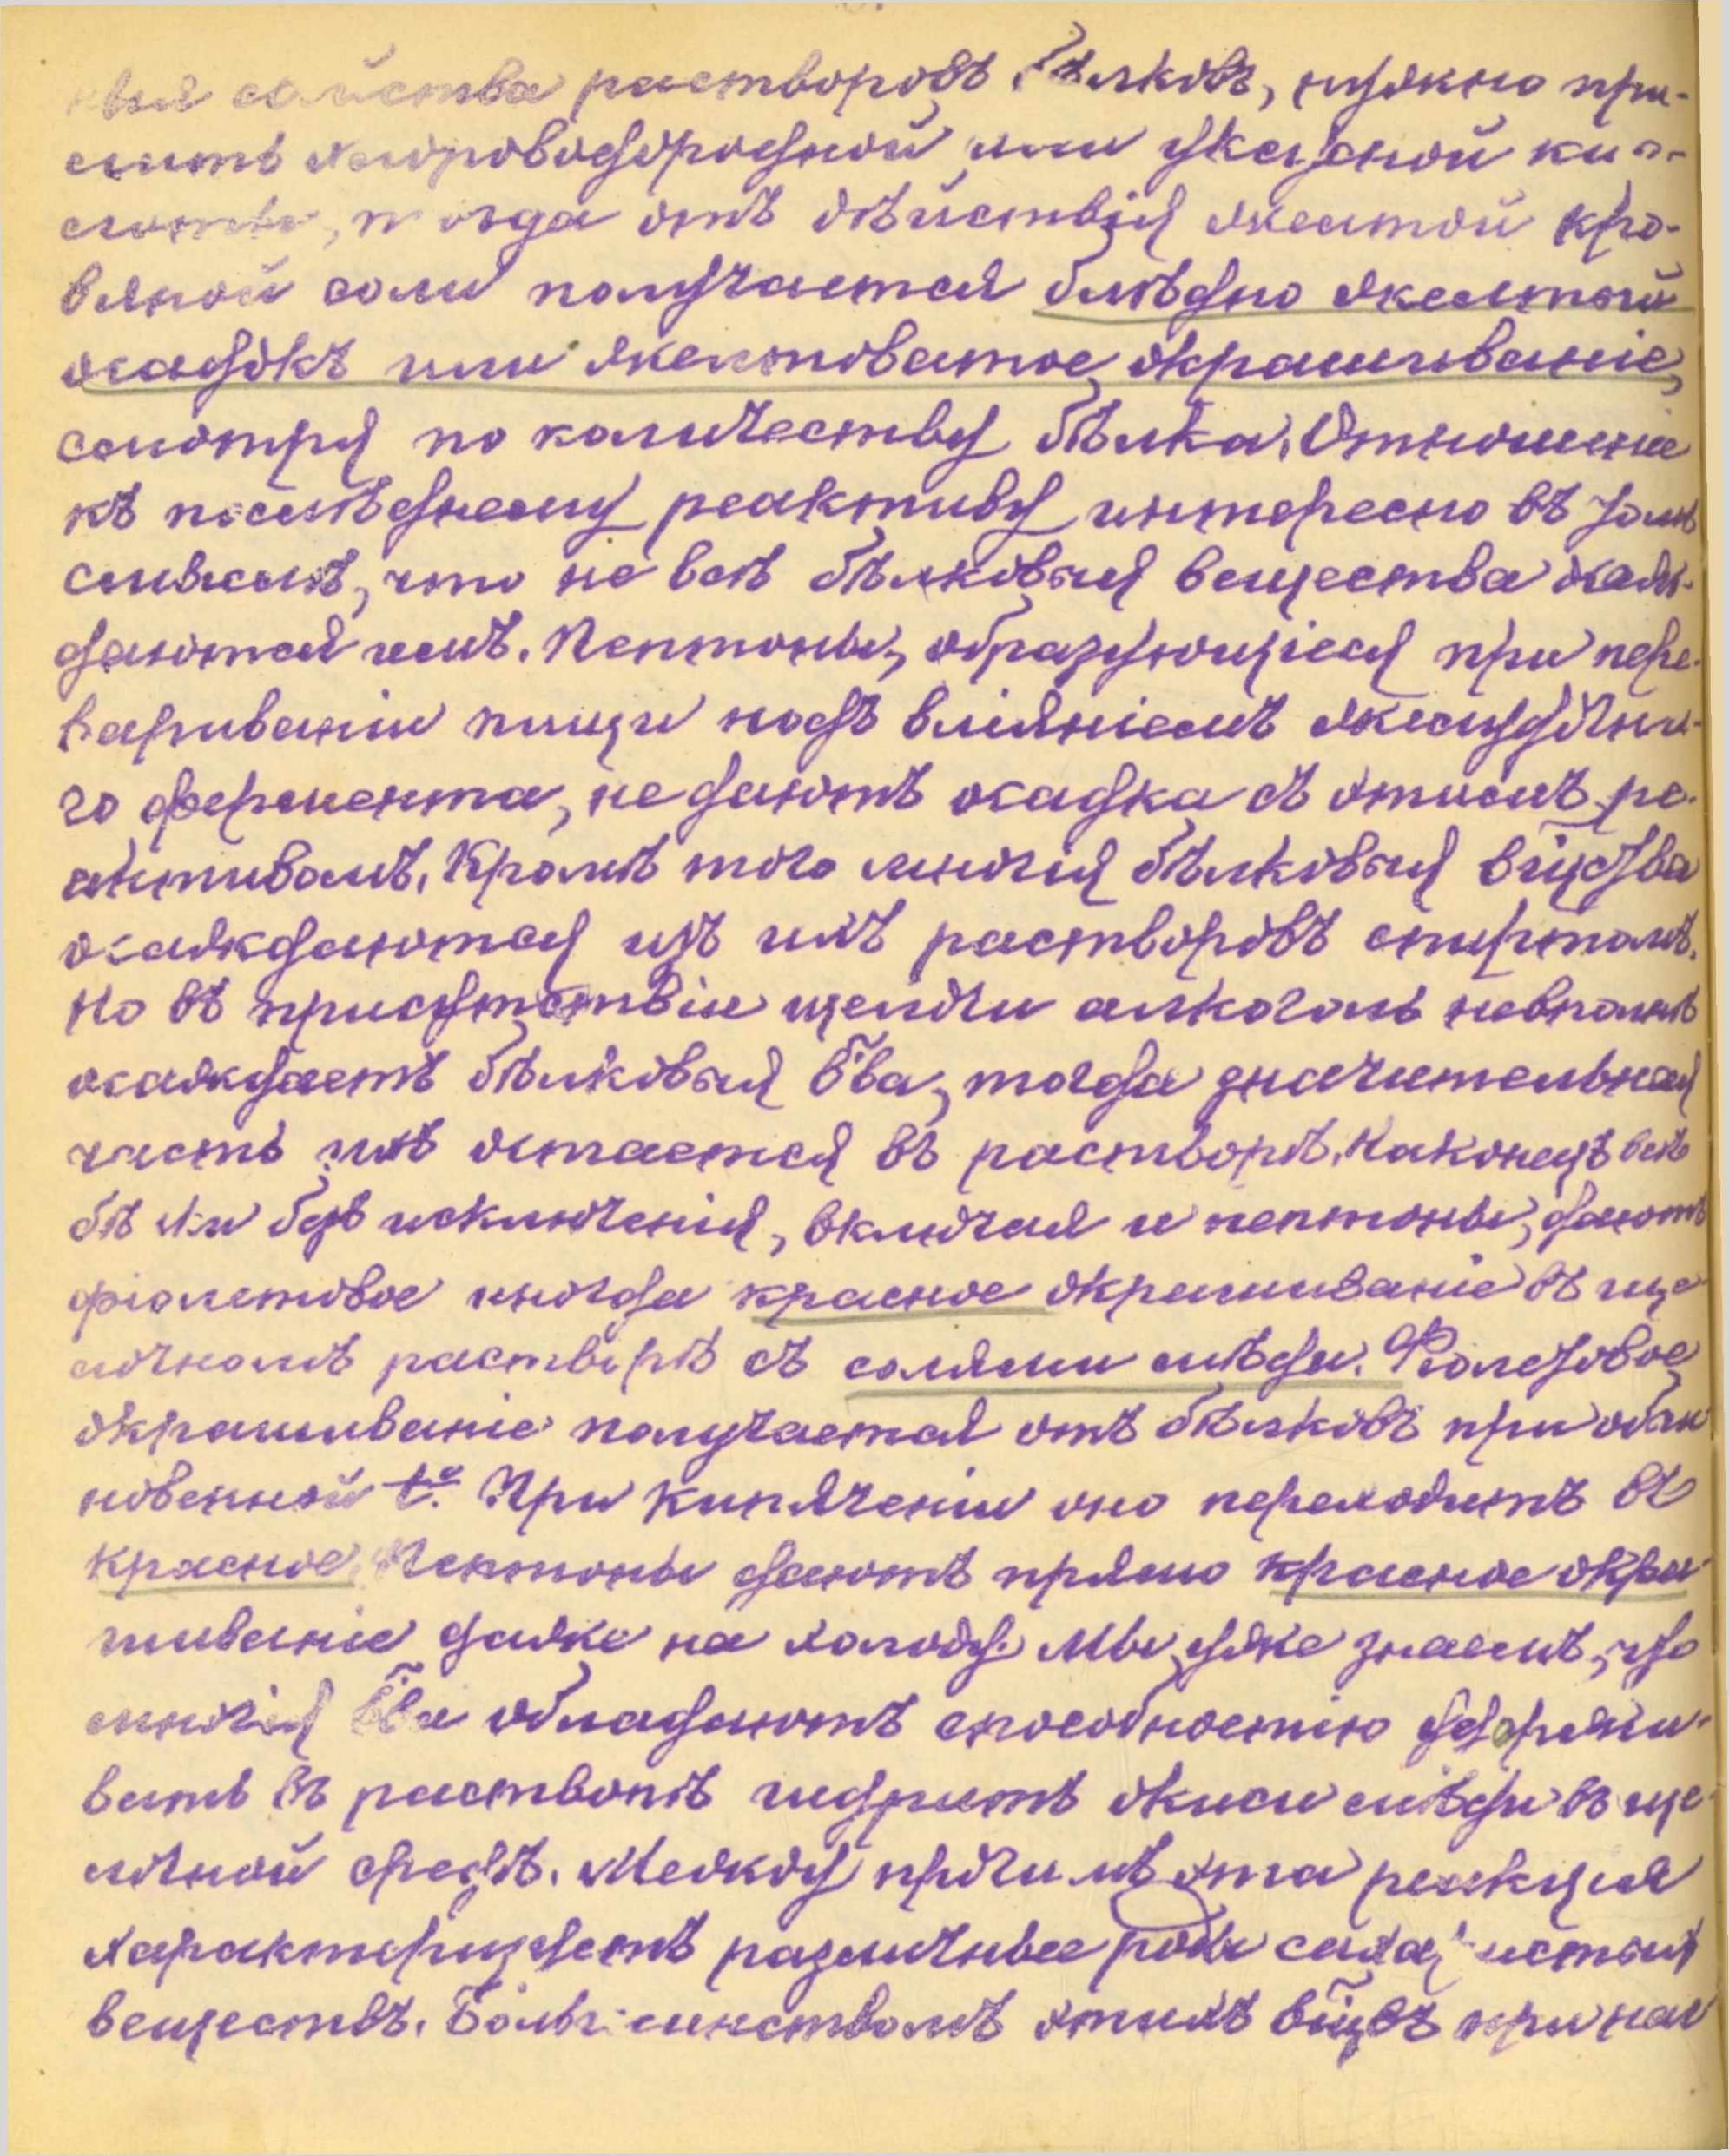 ныя свойства растворовъ бѣлковъ, нужно при-
лить хлороводородной или уксусной ки-
слоты, тогда отъ дѣйствія желтой кро-
вяной соли получается блѣдно желтый
осадокъ или желтоватое окрашиваніе,
смотря по количеству бѣлка. Отношеніе
къ послѣднему реактиву интересно въ томъ
смыслѣ, что не всѣ бѣлковыя вещества осаж-
даются имъ. Пептоны, образующіеся при пере-
вариваніи пищи подъ вліяніемъ желудочна-
го фермента, не даютъ осадка съ этимъ ре-
активомъ. Кромѣ того многія бѣлковыя вщства
осаждаются изъ ихъ растворовъ спиртомъ.
Но въ присутствіи щелочи алкоголь невполнѣ
осаждаетъ бѣлковыя в̃ва, тогда значительная
часть ихъ остается въ растворѣ. Наконецъ всѣ
бѣлки безъ исключенія, включая и пептоны, даютъ
фіолетовое иногда красное окрашиваніе въ ще
лочномъ растворѣ съ солями мѣди. Фіолетовое
окрашиваніе получается отъ бѣлковъ при обык
новенной t°. При кипяченіи оно переходитъ въ
красное. Пептоны даютъ прямо красное окра-
шиваніе даже на холоду. Мы уже знаемъ, что
многія в̃ва обладаютъ способностію удержи-
вать въ растворѣ гидратъ окиси мѣди въ ще-
лочной средѣ. Между прочимъ эта реакція
характеризуетъ различные роды сахаристыхъ
веществъ. Большинствомъ этихъ вщвъ при наг